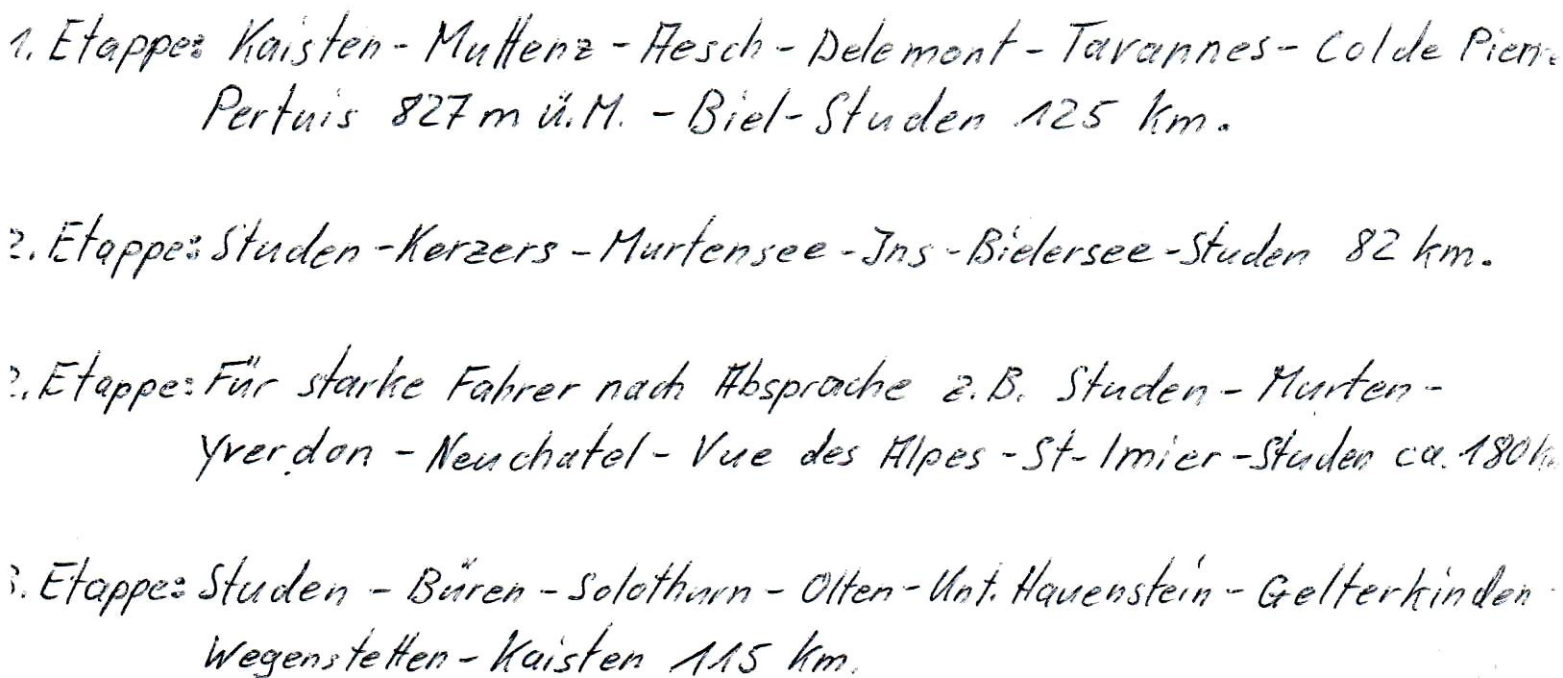 1. Etappe: Kaisten - Muttenz - Aesch - Delemont - Tavannes - Col de Pierre
Pertuis 827 m ü.M. - Biel - Studen 125 km.
2. Etappe: Studen - Kerzers - Murtensee - Ins - Bielersee - Studen 82 km.
2. Etappe: Für starke Fahrer nach Absprache z.B. Studen - Murten -
Yverdon - Neuchatel - Vue des Alpes - St-Imier - Studen ca. 180 km
3. Etappe: Studen - Büren - Solothurn - Olten - Unt. Hauenstein - Gelterkinden -
Wegenstetten - Kaisten 115 km.